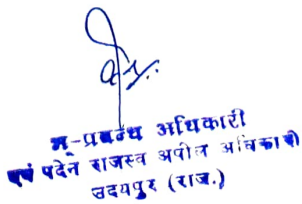 भ-प्रबन्ध अधिकारी
एवं पदेन राजस्व अपील अधिकारी
उदयपुर (राज.)